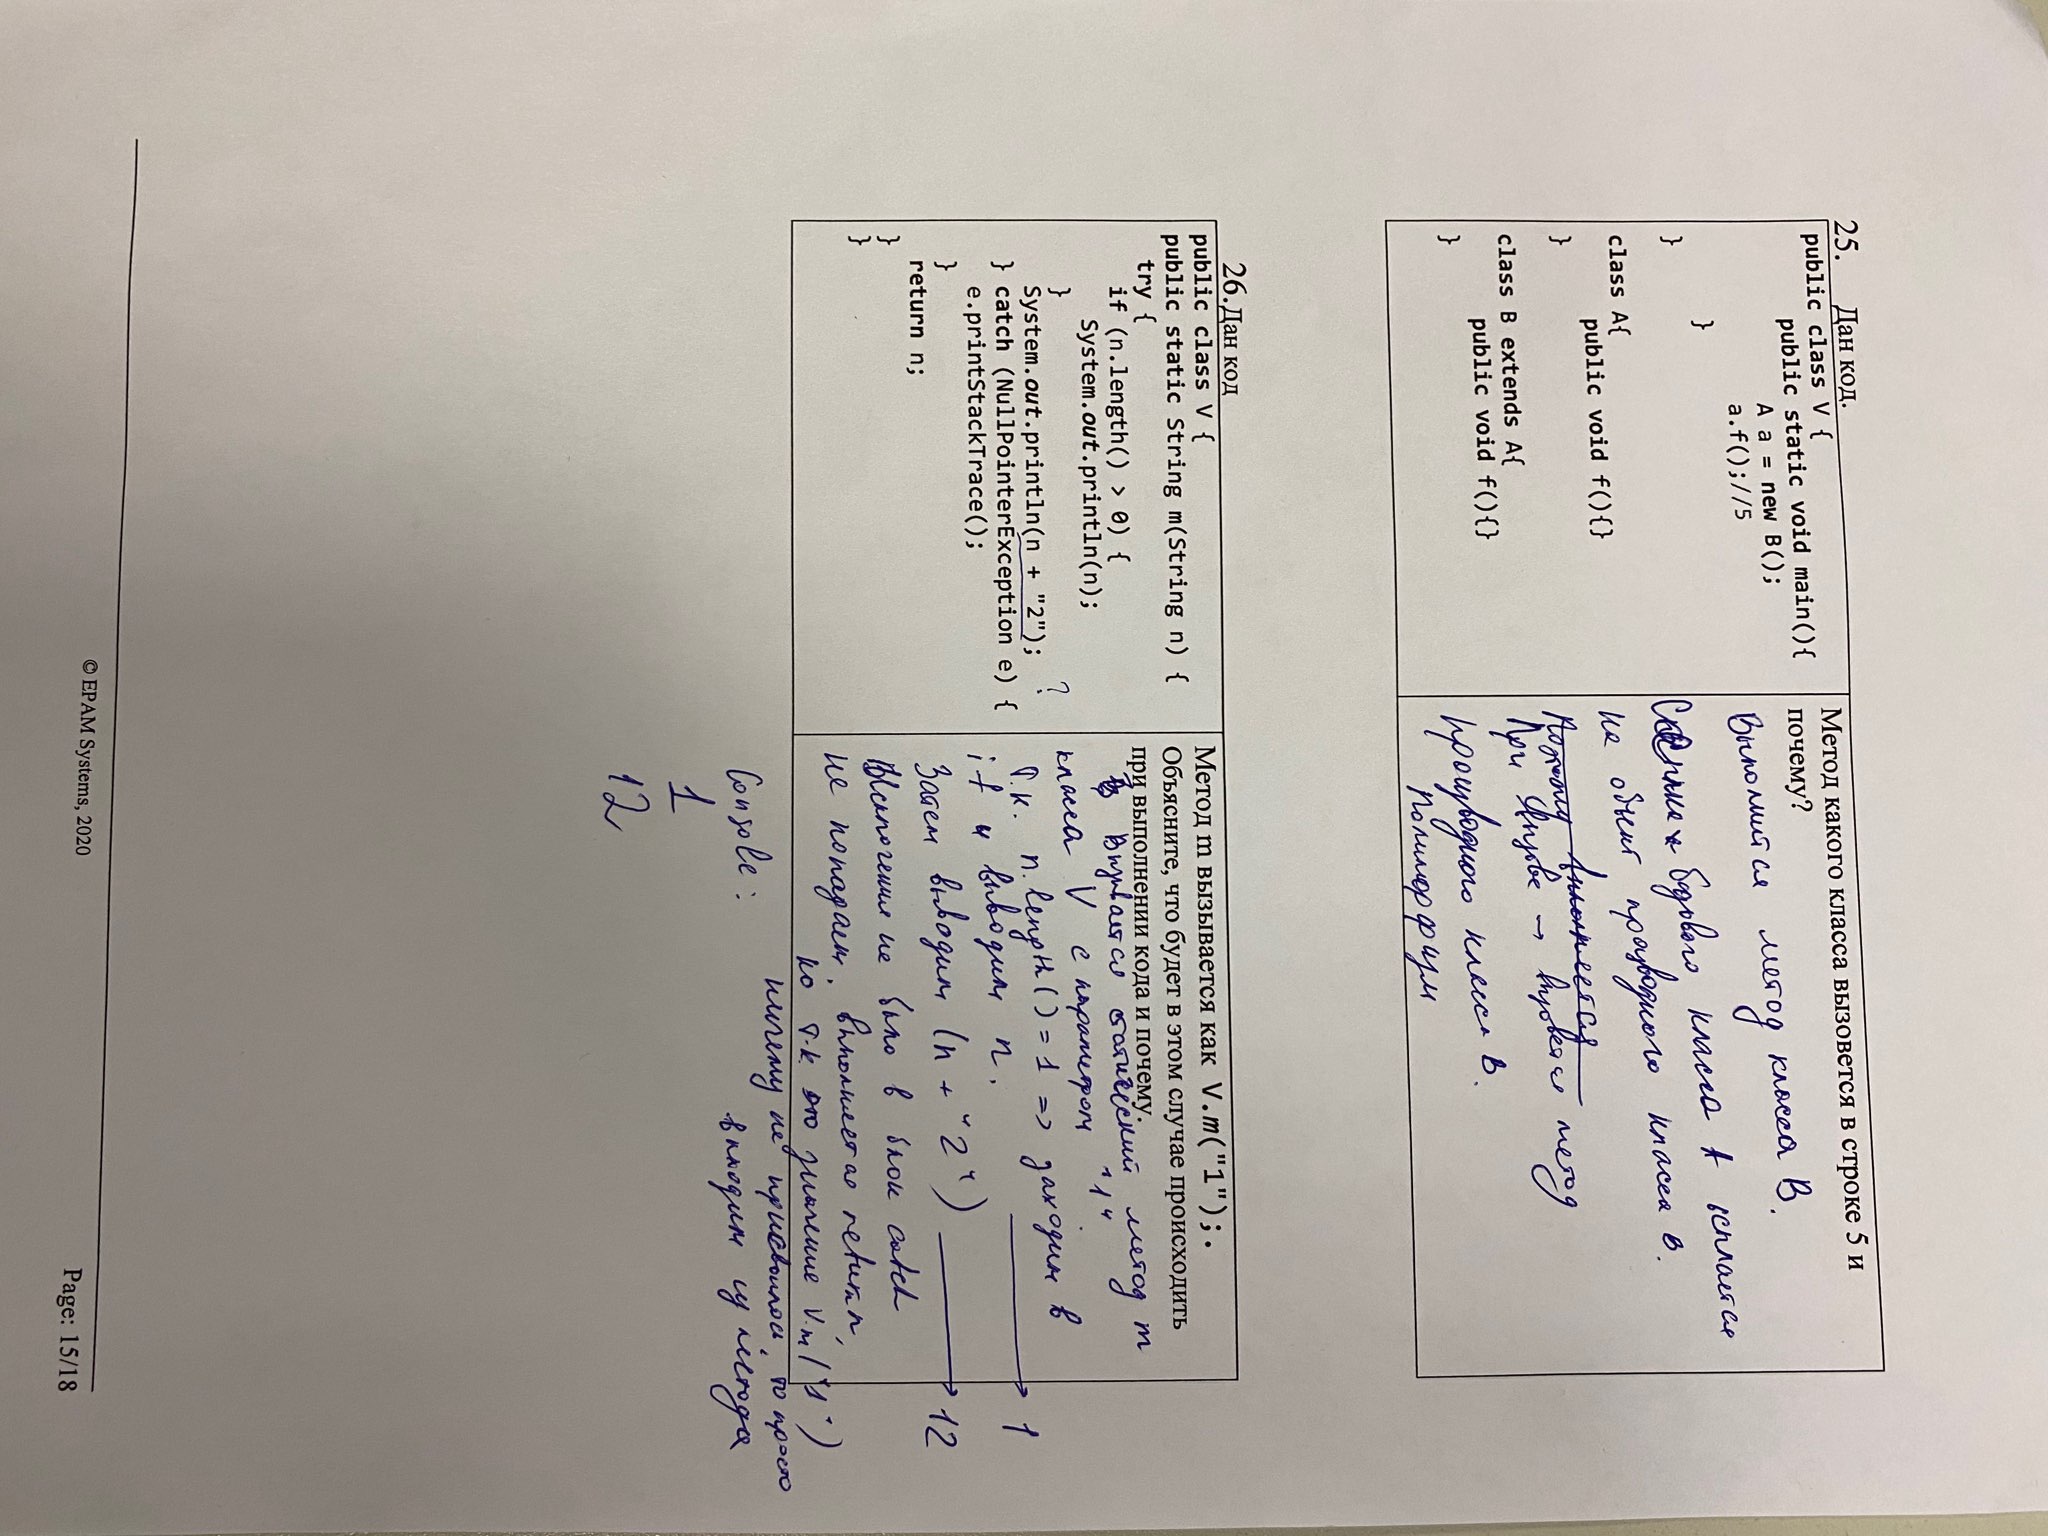 25. Дан код.
public class V {
public static void main(){
A a = new B();
a.f();//5
}
}
class A{
public void f(){}
}
class B extends A{
public void f(){}
}
Метод какого класса вызовется в строке 5 и
почему?
Выполнится метод класса B.
базового класса A ссылается
на объект производного класса B.
При вызове → вызовется метод
производного класса B.
Полиморфизм
26.Дан код
public class V {
public static String m(String n) {
try {
if (n.length() > 0) {
System.out.println(n);
}
System.out.println(n + "2"); ?
} catch (NullPointerException e) {
e.printStackTrace();
}
return n;
}
}
Метод m вызывается как V.m("1");.
Объясните, что будет в этом случае происходить
при выполнении кода и почему.
Вызывается статический метод m
класса V с параметром "1"
Т.к. n.length() = 1 => заходим в
if и выводим n. → 1
Затем выводим (n + "2") → 12
Исключения не было в блок catch
не попадаем. Выполняется return n,
но т.к. это значение V.m("1")
ничему не присвоилось, то просто
выходим из метода
Console:
1
12
© EPAM Systems, 2020
Page: 15/18